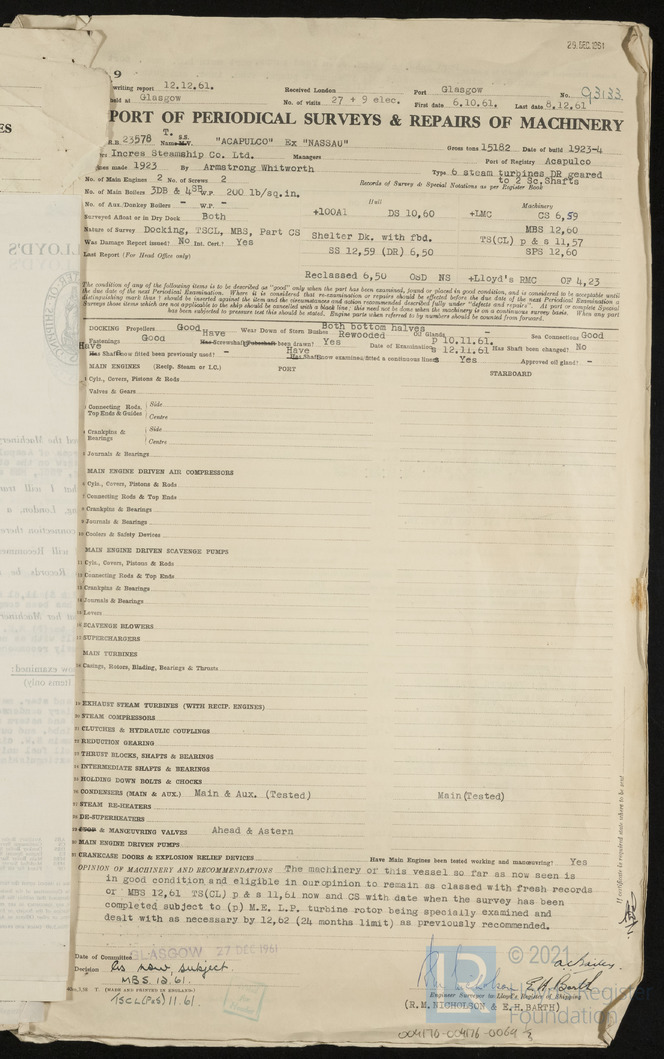 29 DEC 1961
9
writing report 12.12.61. Received London Port Glasgow No. 93133
held at Glasgow No. of visits 27 + 9 elec. First date 6.10.61. Last date 8.12.61
PORT OF PERIODICAL SURVEYS & REPAIRS OF MACHINERY
23578 T.S.S. Name "ACAPULCO" Ex "NASSAU" Gross tons 15182 Date of build 1923-4
Incres Steamship Co. Ltd. Managers Port of Registry Acapulco
made 1923 By Armstrong Whitworth Type 6 steam turbines DR geared to 2 Sc.Shafts
No. of Main Engines 2 No. of Screws 2 Records of Survey & Special Notations as per Register Book
No. of Main Boilers 3DB & 4SB W.P. 200 lb/sq.in. Hull Machinery
No. of Aux./Donkey Boilers - W.P. - +100A1 DS 10,60 +LMC CS 6,59
Surveyed Afloat or in Dry Dock Both MBS 12,60
Nature of Survey Docking, TSCL, MBS, Part CS Shelter Dk. with fbd. TS(CL) p & s 11,57
Was Damage Report issued? No Int. Cert.? Yes SPS 12,60
Last Report (For Head Office only) SS 12,59 (DR) 6,50
Reclassed 6,50 OSD NS +Lloyd's RMC OF 4,23
The condition of any of the following items is to be described as "good" only when the part has been examined, found or placed in good condition, and is considered to be acceptable until
the due date of the next Periodical Examination.
DOCKING Propellers Good Wear Down of Stern Bushes Both bottom halves Rewooded Sea Connections Good
Fastenings Good Have Screwshafts been drawn? Yes Oil Glands - Date of Examination p 10.11.61. s 12.11.61 Has Shaft been changed? No
Have Shafts now fitted been previously used? - Have Shafts now examined/fitted a continuous liner? Yes Approved oil gland? -
MAIN ENGINES (Recip. Steam or I.C.) PORT STARBOARD
1 Cyls., Covers, Pistons & Rods
Valves & Gears
Connecting Rods, Top Ends & Guides Side
Centre
Crankpins & Bearings Side
Centre
5 Journals & Bearings
MAIN ENGINE DRIVEN AIR COMPRESSORS
6 Cyls., Covers, Pistons & Rods
7 Connecting Rods & Top Ends
8 Crankpins & Bearings
9 Journals & Bearings
10 Coolers & Safety Devices
MAIN ENGINE DRIVEN SCAVENGE PUMPS
11 Cyls., Covers, Pistons & Rods
12 Connecting Rods & Top Ends
13 Crankpins & Bearings
14 Journals & Bearings
15 Levers
16 SCAVENGE BLOWERS
17 SUPERCHARGERS
MAIN TURBINES
18 Casings, Rotors, Blading, Bearings & Thrusts
19 EXHAUST STEAM TURBINES (WITH RECIP. ENGINES)
20 STEAM COMPRESSORS
21 CLUTCHES & HYDRAULIC COUPLINGS
22 REDUCTION GEARING
23 THRUST BLOCKS, SHAFTS & BEARINGS
24 INTERMEDIATE SHAFTS & BEARINGS
25 HOLDING DOWN BOLTS & CHOCKS
26 CONDENSERS (MAIN & AUX.) Main & Aux. (Tested) Main (Tested)
27 STEAM RE-HEATERS
28 DE-SUPERHEATERS
29 STOP & MANŒUVRING VALVES Ahead & Astern
30 MAIN ENGINE DRIVEN PUMPS
31 CRANKCASE DOORS & EXPLOSION RELIEF DEVICES Have Main Engines been tested working and manœuvring? Yes
OPINION OF MACHINERY AND RECOMMENDATIONS The machinery of this vessel so far as now seen is
in good condition and eligible in our opinion to remain as classed with fresh records
or MBS 12,61 TS(CL) p & s 11,61 now and CS with date when the survey has been
completed subject to (p) M.E. L.P. turbine rotor being specially examined and
dealt with as necessary by 12,62 (24 months limit) as previously recommended.
If certificate is required state where to be sent
Date of Committee GLASGOW 27 DEC 1961
Decision As now subject.
MBS 12.61.
TSCL(P&S) 11.61
(MADE AND PRINTED IN ENGLAND)
E.H. Barth
Engineer Surveyor to Lloyd's Register of Shipping
(R.M. NICHOLSON & E.H. BARTH)
LR © 2021
Lloyd's Register
Foundation
004176-004176-0064